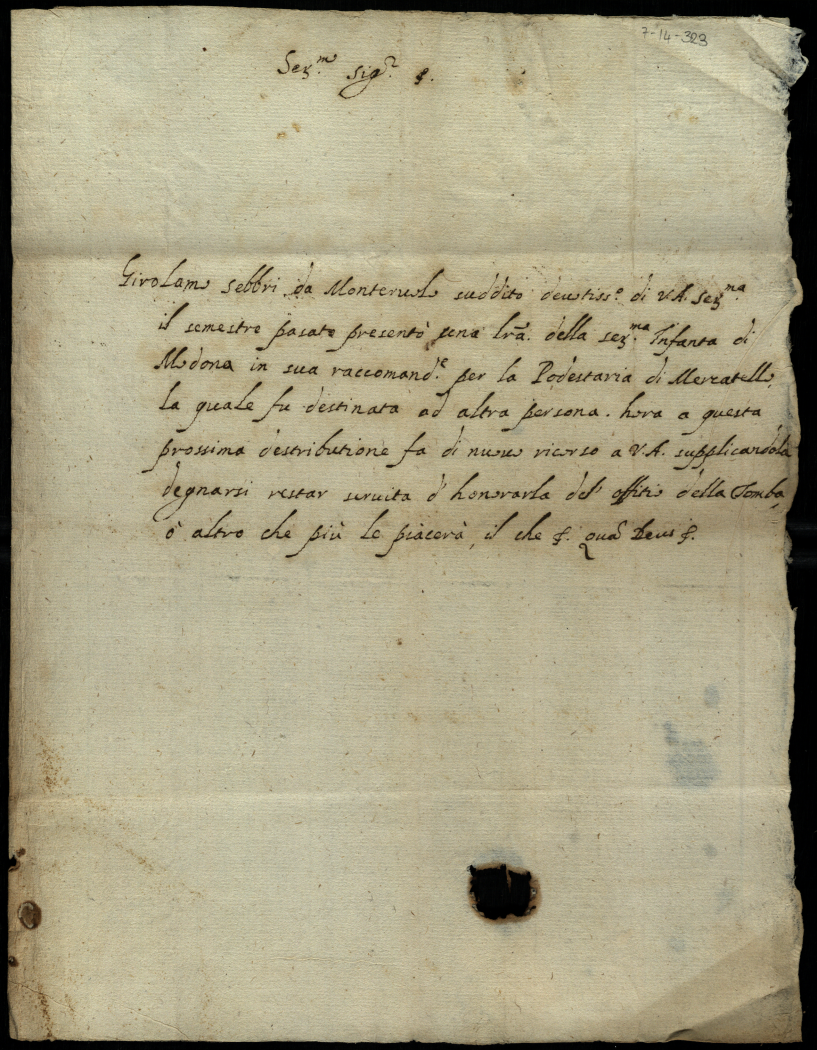 7-14-323
Ser.mo Sig.r
Girolamo Sebbri da Monteruolo suddito deuotiss.o di V.A. Ser.ma
il semestre pasato presentò una lra. della ser.ma Infanta di
Modona in sua raccomand.e per la Podestaria di Mercatello,
la quale fu destinata ad altra persona. hora a questa
prossima destributione fa di nuouo ricorso a V.A. supplicandola
degnarsi restar seruita d' honorarla del' offitio della Tomba,
ò altro che più le piacerà, il che Deus